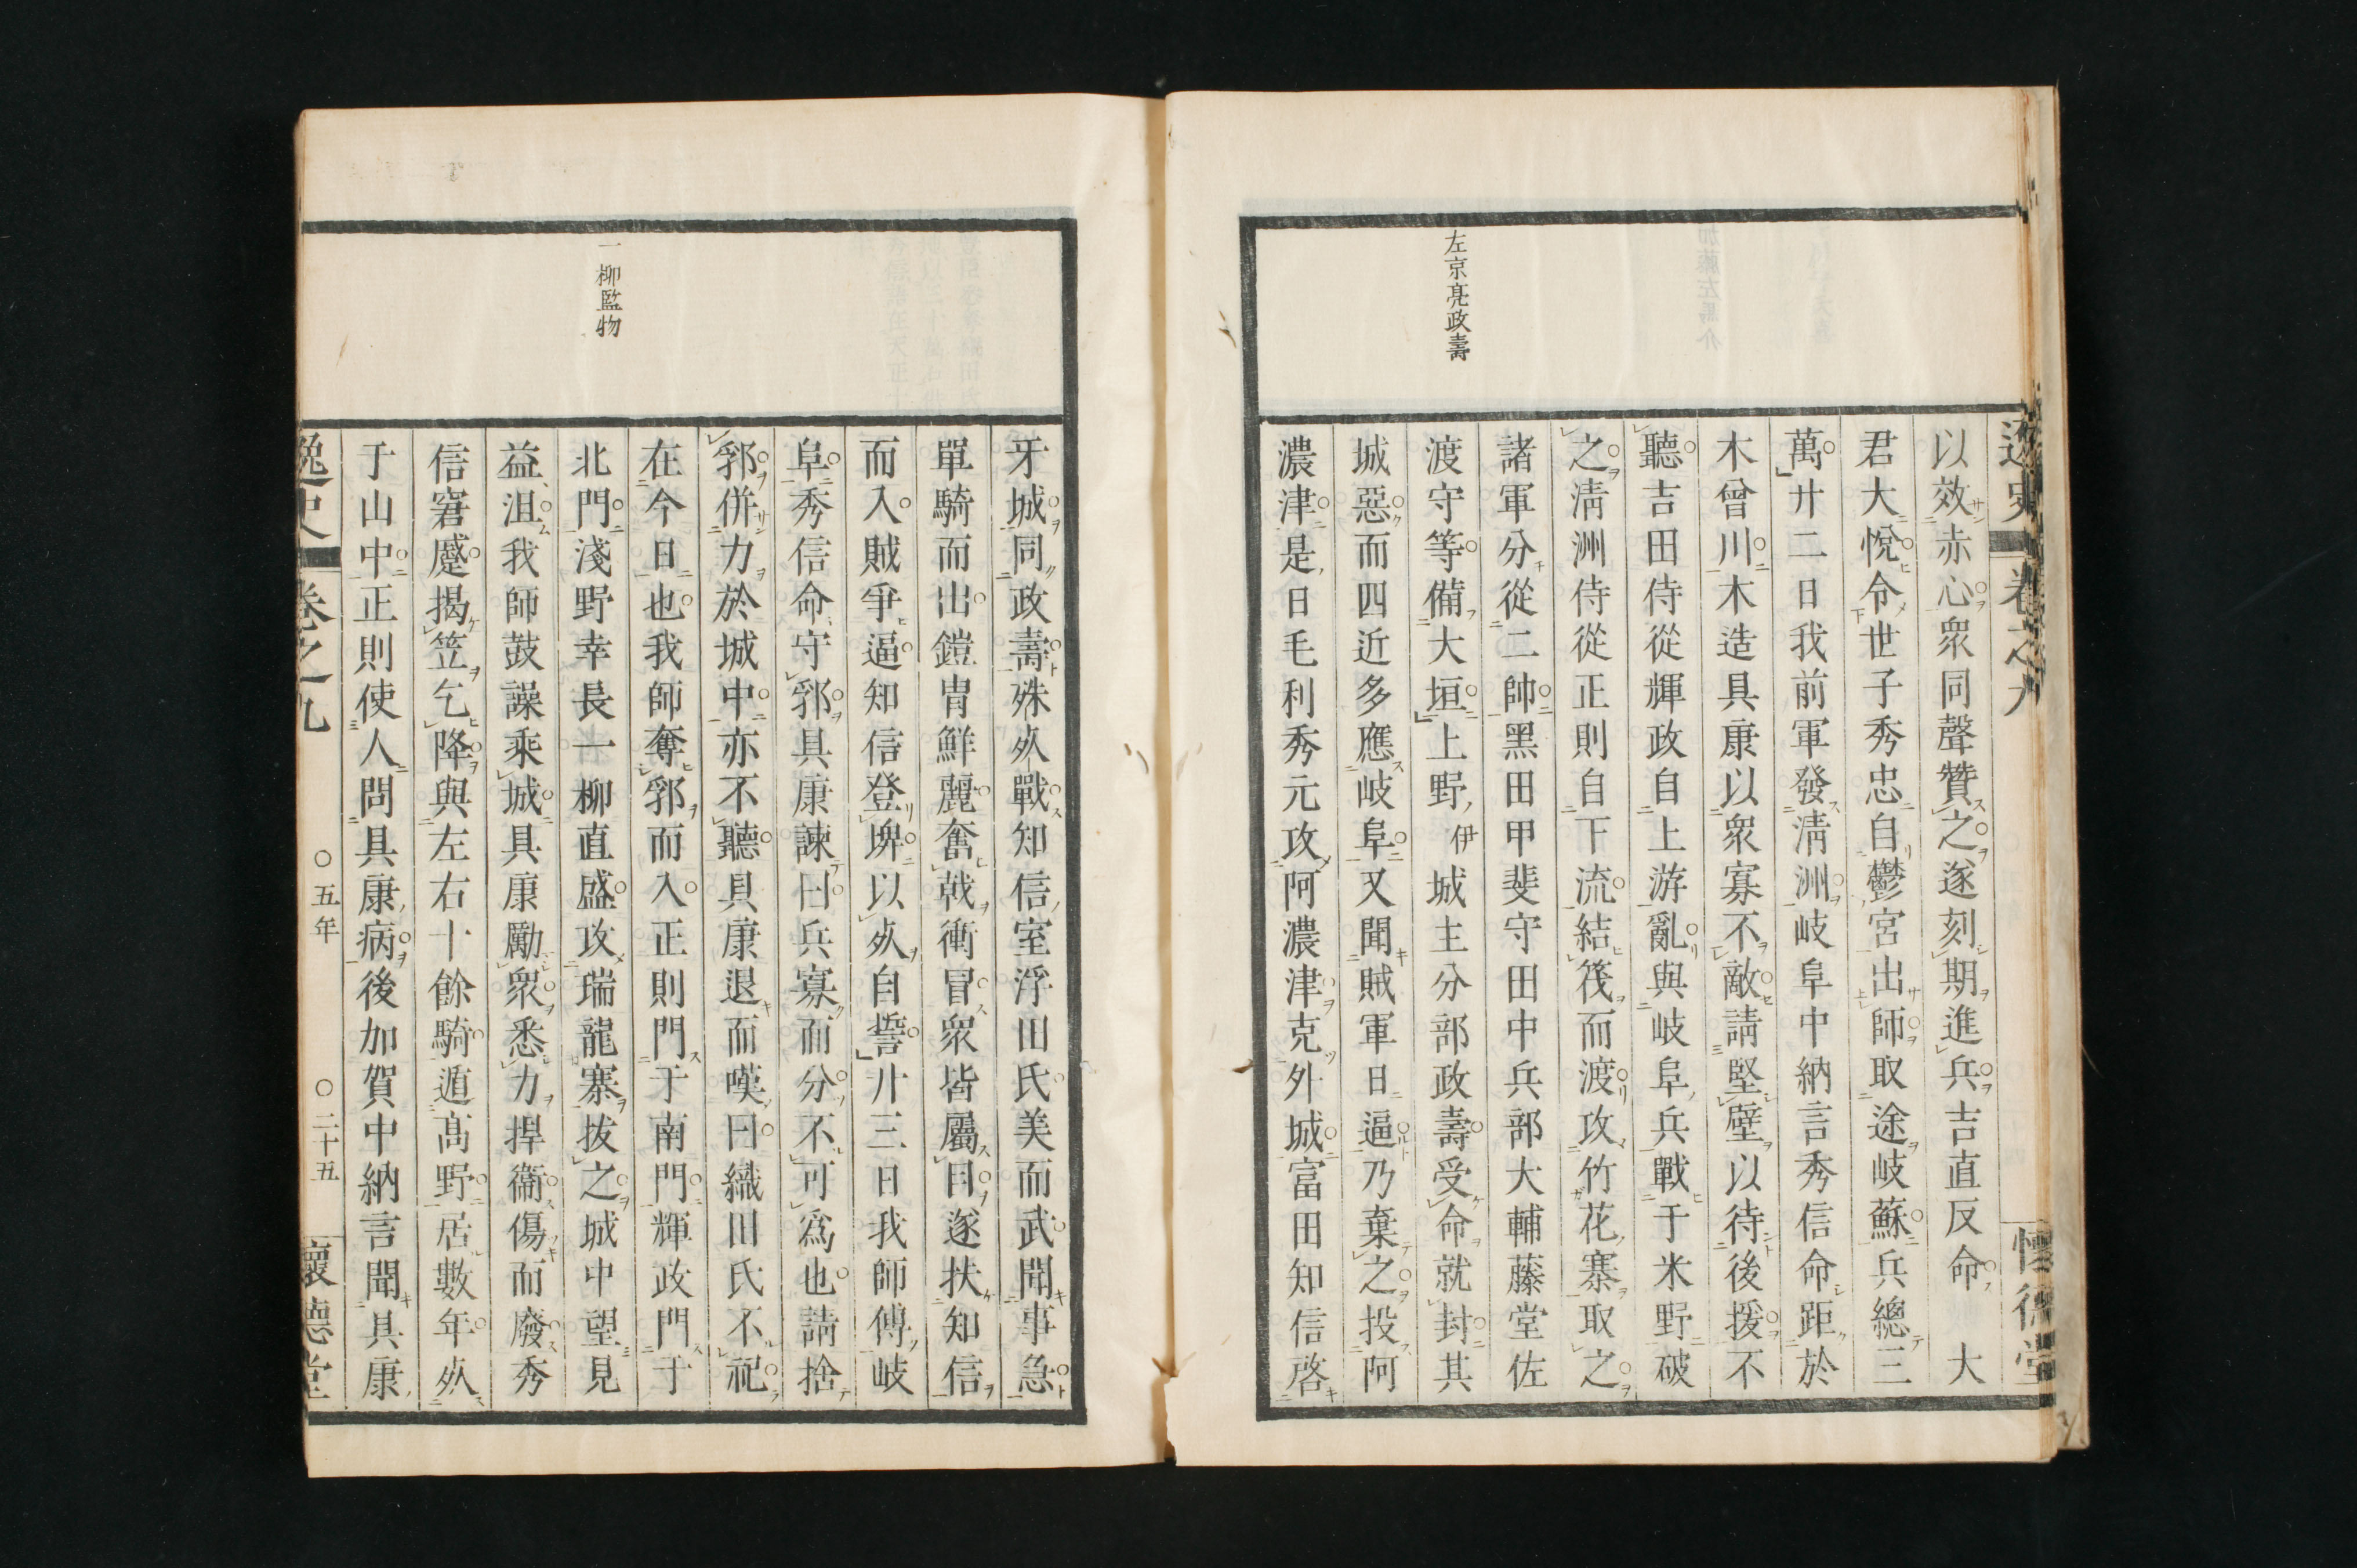 逸史 卷之九 懷德堂
左京亮政壽
以效赤心衆同聲贊之遂刻期進兵吉直反命 大
君大悅令世子秀忠自鬱宮出師取途岐蘇兵總三
萬廿二日我前軍發淸洲岐阜中納言秀信命距於
木曾川木造具康以衆寡不敵請堅壁以待後援不
聽吉田侍從輝政自上游亂與岐阜兵戰于米野破
之淸洲侍從正則自下流結筏而渡攻竹花寨取之
諸軍分從二帥黑田甲斐守田中兵部大輔藤堂佐
渡守等備大垣上野伊城主分部政壽受命就封其
城惡而四近多應岐阜又聞賊軍日逼乃棄之投阿
濃津是日毛利秀元攻阿濃津克外城富田知信啓
一柳監物
牙城同政壽殊死戰知信室浮田氏美而武聞事急
單騎而出鎧冑鮮麗奮戟衝冒衆皆屬目遂扶知信
而入賊爭逼知信登埤以死自誓廿三日我師傅岐
阜秀信命守郛具康諫曰兵寡而分不可爲也請捨
郛併力於城中亦不聽具康退而嘆曰織田氏不祀
在今日也我師奪郛而入正則門于南門輝政門于
北門淺野幸長一柳直盛攻瑞龍寨拔之城中望見
益沮我師鼓譟乘城具康勵衆悉力捍衞傷而廢秀
信窘蹙揭笠乞降與左右十餘騎遁高野居數年死
于山中正則使人問具康病後加賀中納言聞具康
逸史 卷之九 〇五年 〇二十五 懷德堂